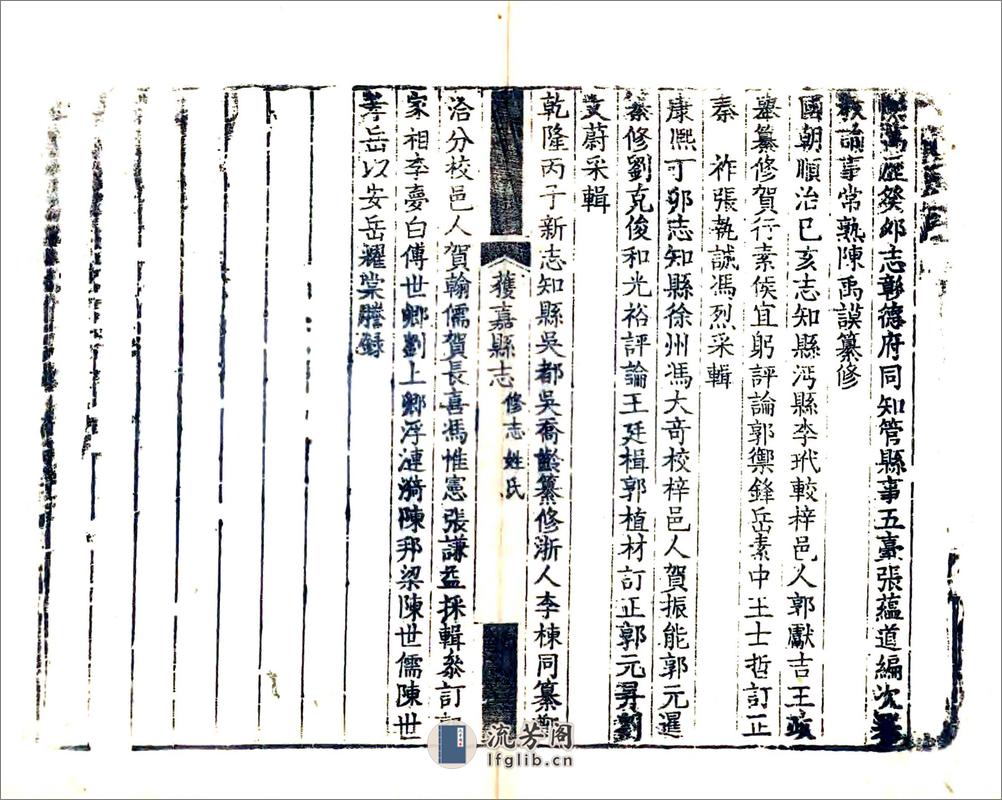 萬曆癸卯志彰德府同知管縣事五臺張蘊道編次署
教諭事常熟陳禹謨纂修
國朝順治己亥志知縣沔縣李玳較梓邑人郭獻吉王政
纂修賀行素侯宜躬評論郭禦鋒岳素中王士哲訂正
秦祚張執誠馮烈采輯
康熙丁卯志知縣徐州馮大奇校梓邑人賀振能郭元暹
纂修劉克俊和光裕評論王廷楫郭植材訂正郭元昇劉
文蔚采輯
乾隆丙子新志知縣吳都吳喬齡纂修浙人李棟同纂鄭
獲嘉縣志
修志姓氏
洽分校邑人賀翰儒賀長喜馮惟憲張謙益採輯參訂
家相李夢白傅世卿劉上卿浮漣漪陳邦梁陳世儒陳世
孝岳以安岳耀棠謄錄
流芳阁
lfglib.cn